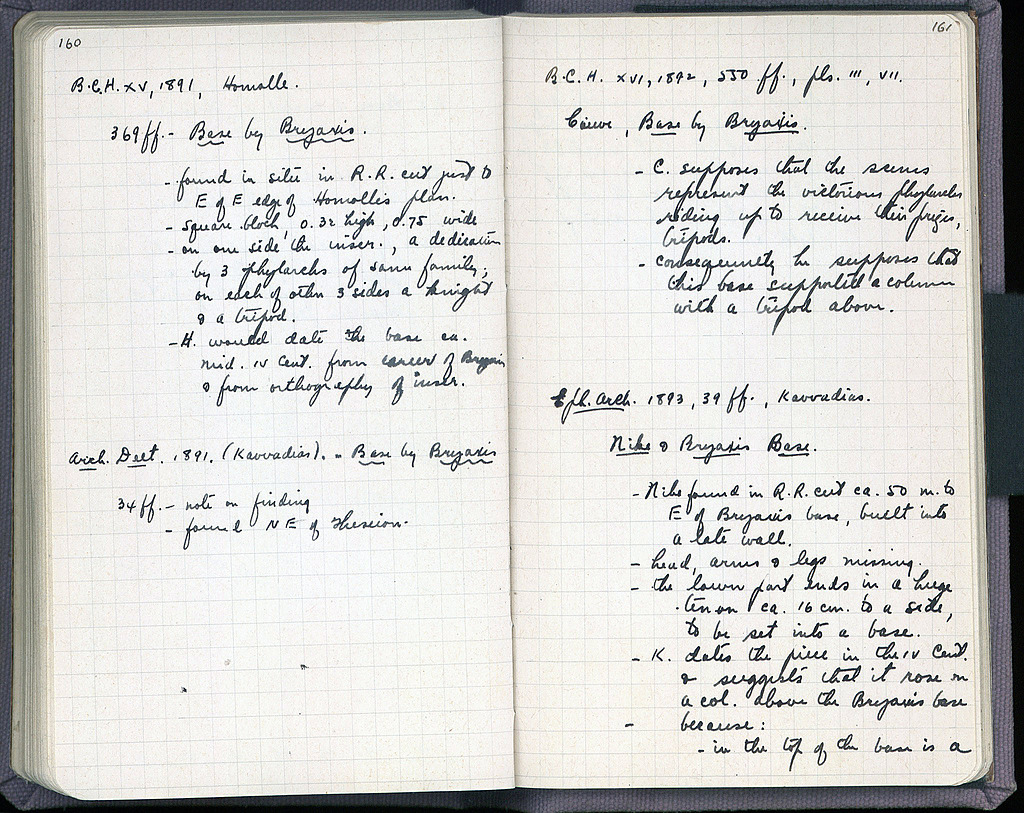 160
B.C.H. XV, 1891, Homolle.
369 ff. - Base by Bryaxis.
- found in situ in R.R. cut just to
E of E edge of Homolle's plan.
- square block, 0.32 high, 0.75 wide
- on one side the inscr., a dedication
by 3 phylarchs of same family;
on each of other 3 sides a knight
& a tripod.
- H. would date the base ca.
mid. IV cent. from career of Bryaxis
& from orthography of inscr.
Arch. Delt. 1891. (Kavvadias). - Base by Bryaxis
34 ff. - note on finding
- found NE of Theseion.
161
B.C.H. XVI, 1892, 550 ff., pls. III, VII.
Couve, Base by Bryaxis.
- C. supposes that the scenes
represent the victorious phylarchs
riding up to receive their prizes,
tripods.
- consequently he supposes that
this base supported a column
with a tripod above.
Eph. Arch. 1893, 39 ff., Kavvadias.
Nike & Bryaxis Base.
- Nike found in R.R. cut ca. 50 m. to
E of Bryaxis base, built into
a late wall.
- head, arms & legs missing.
- the lower part ends in a huge
tenon ca. 16 cm. to a side,
to be set into a base.
- K. dates the piece in the IV cent.
& suggests that it rose on
a col. above the Bryaxis base
- because:
- in the top of the base is a